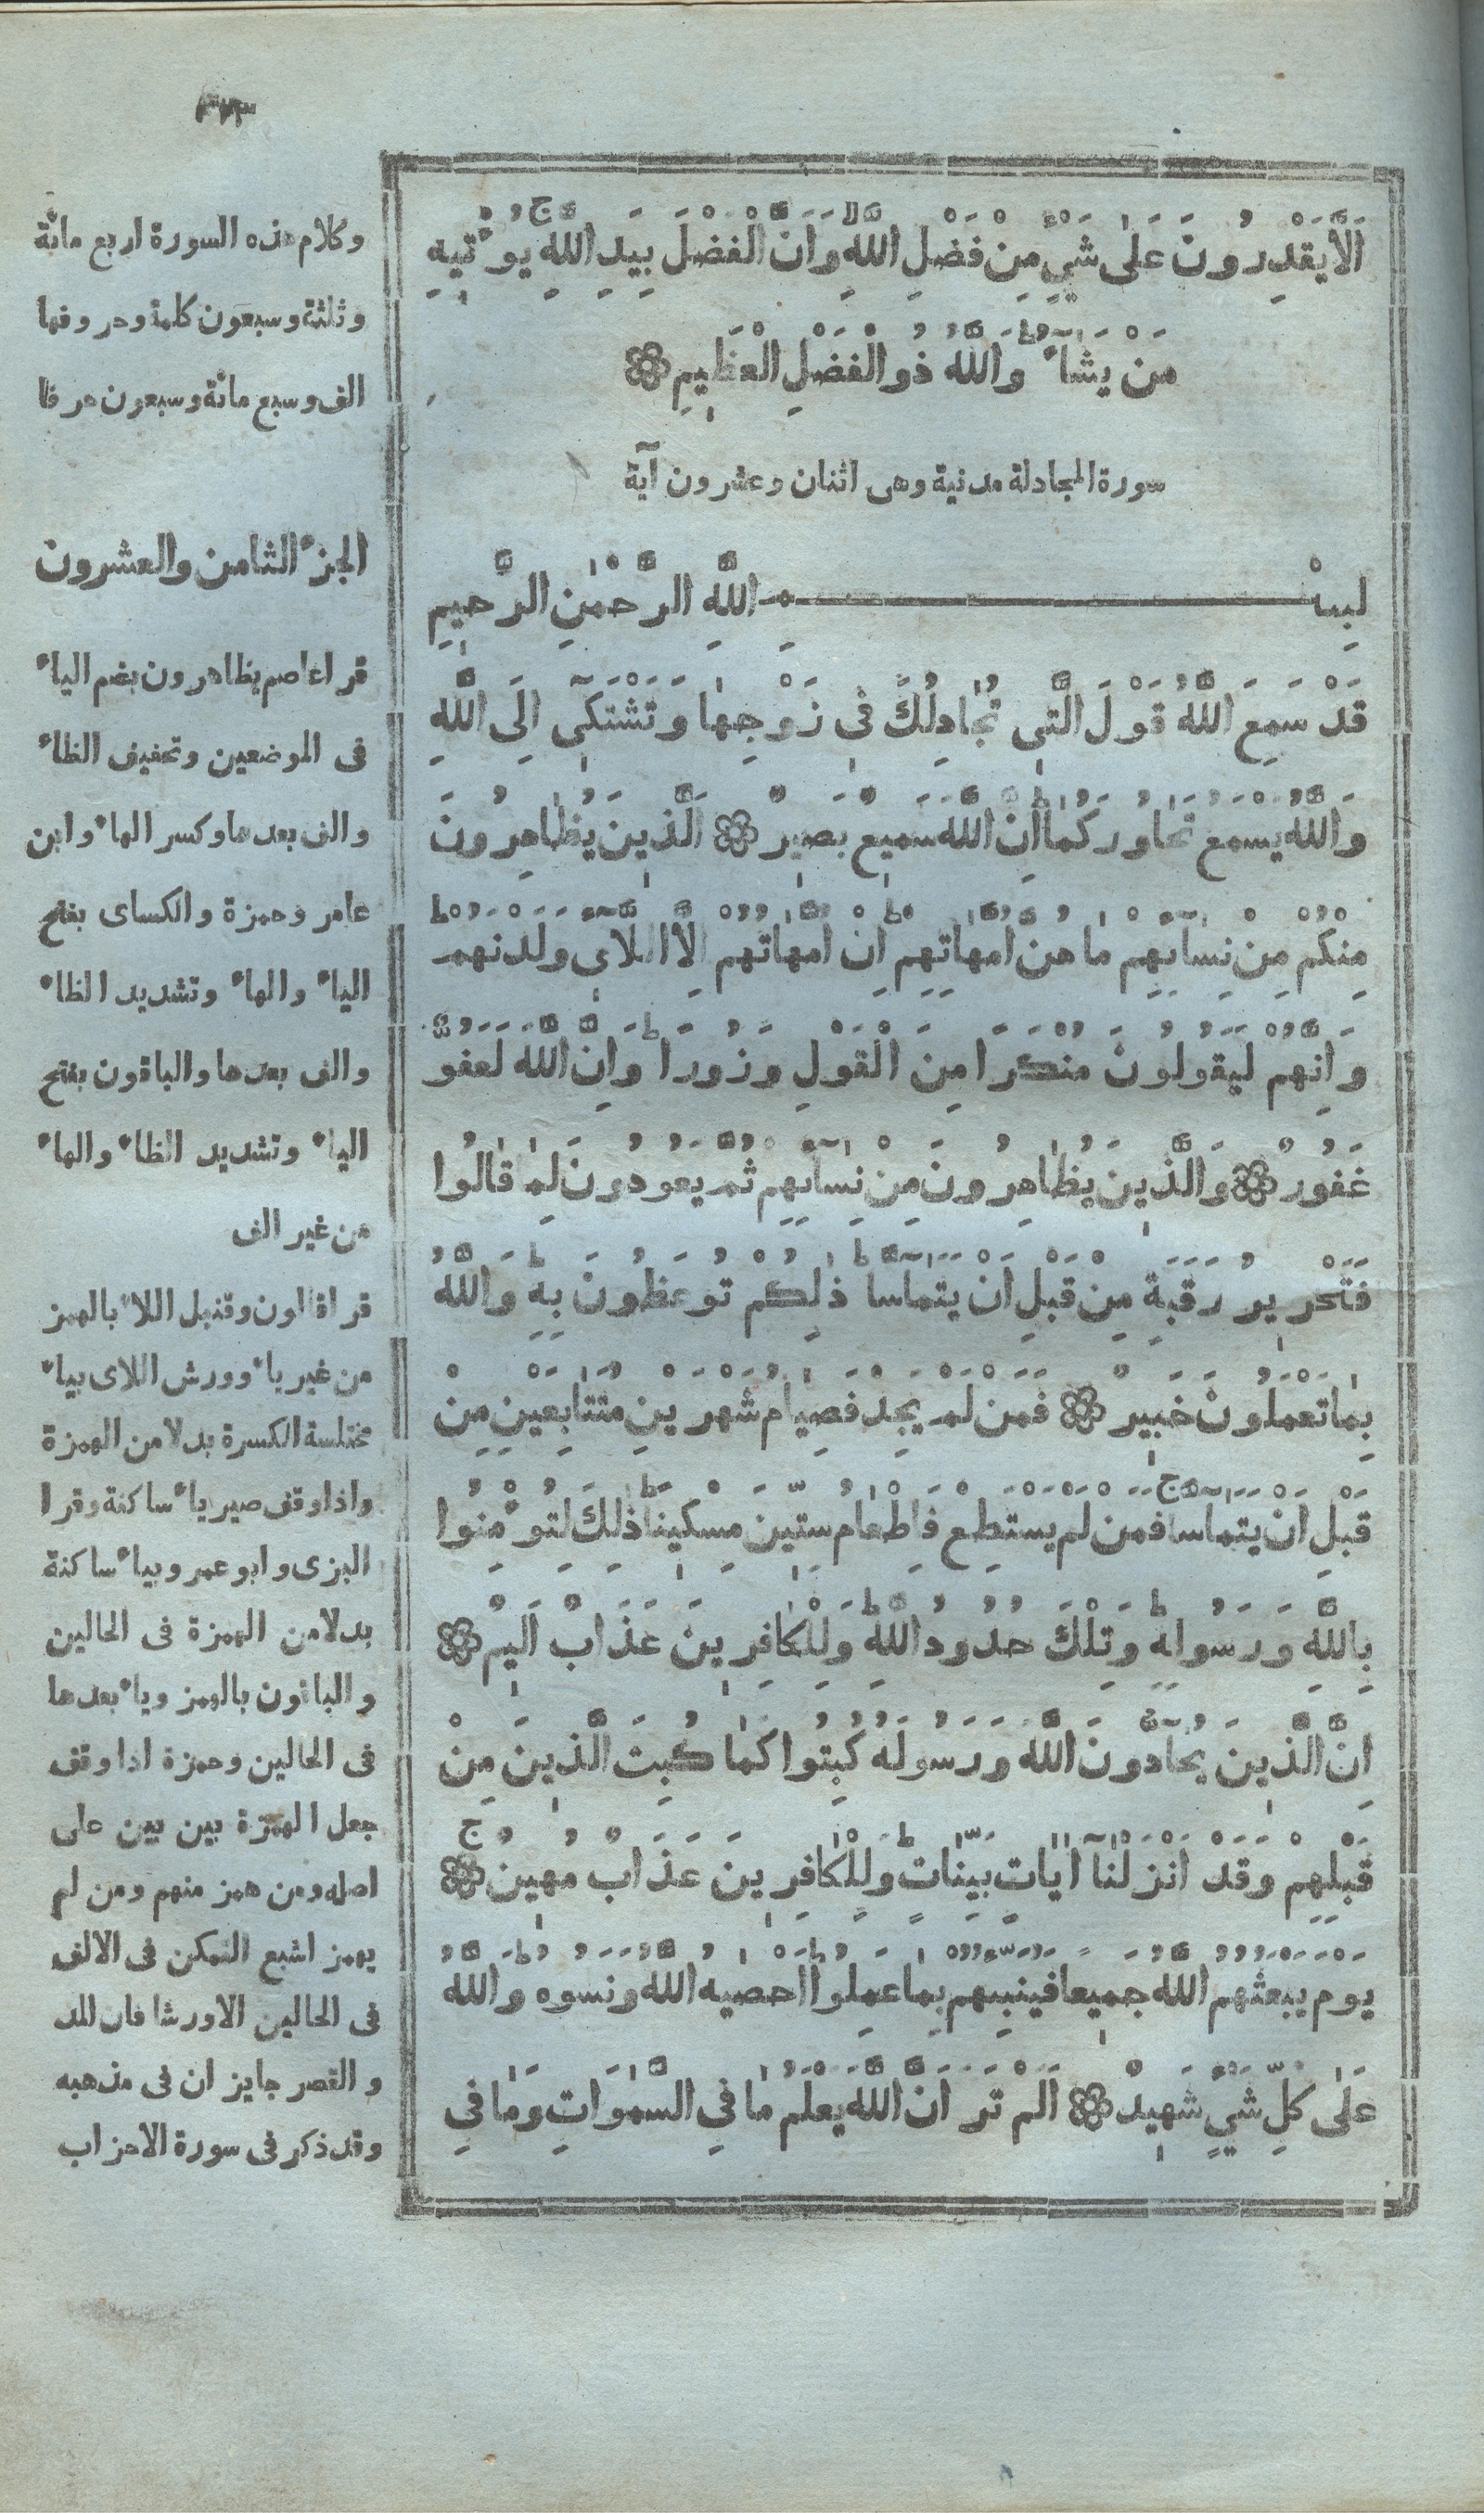 اَلَّا يَقْدِرُونَ عَلٰى شَيْءٍ مِنْ فَضْلِ اللَّهِ وَاَنَّ الْفَضْلَ بِيَدِ اللَّهِ يُؤْتِيهِ
مَنْ يَشَآءُ وَاللَّهُ ذُو الْفَضْلِ الْعَظِيمِ
سورة المجادلة مدنية وهى اثنتان وعشرون آية
بِسْمِ اللَّهِ الرَّحْمٰنِ الرَّحِيمِ
قَدْ سَمِعَ اللَّهُ قَوْلَ الَّتِى تُجَادِلُكَ فِى زَوْجِهَا وَتَشْتَكِىٓ اِلَى اللَّهِ
وَاللَّهُ يَسْمَعُ تَحَاوُرَكُمَا اِنَّ اللَّهَ سَمِيعٌ بَصِيرٌ اَلَّذِينَ يُظَاهِرُونَ
مِنْكُمْ مِنْ نِسَآئِهِمْ مَا هُنَّ اُمَّهَاتِهِمْ اِنْ اُمَّهَاتُهُمْ اِلَّا اللَّآئِى وَلَدْنَهُمْ
وَاِنَّهُمْ لَيَقُولُونَ مُنْكَرًا مِنَ الْقَوْلِ وَزُورًا وَاِنَّ اللَّهَ لَعَفُوٌّ
غَفُورٌ وَالَّذِينَ يُظَاهِرُونَ مِنْ نِسَآئِهِمْ ثُمَّ يَعُودُونَ لِمَا قَالُوا
فَتَحْرِيرُ رَقَبَةٍ مِنْ قَبْلِ اَنْ يَتَمَآسَّا ذٰلِكُمْ تُوعَظُونَ بِهِ وَاللَّهُ
بِمَا تَعْمَلُونَ خَبِيرٌ فَمَنْ لَمْ يَجِدْ فَصِيَامُ شَهْرَيْنِ مُتَتَابِعَيْنِ مِنْ
قَبْلِ اَنْ يَتَمَآسَّا فَمَنْ لَمْ يَسْتَطِعْ فَاِطْعَامُ سِتِّينَ مِسْكِينًا ذٰلِكَ لِتُؤْمِنُوا
بِاللَّهِ وَرَسُولِهِ وَتِلْكَ حُدُودُ اللَّهِ وَلِلْكَافِرِينَ عَذَابٌ اَلِيمٌ
اِنَّ الَّذِينَ يُحَآدُّونَ اللَّهَ وَرَسُولَهُ كُبِتُوا كَمَا كُبِتَ الَّذِينَ مِنْ
قَبْلِهِمْ وَقَدْ اَنْزَلْنَآ اٰيَاتٍ بَيِّنَاتٍ وَلِلْكَافِرِينَ عَذَابٌ مُهِينٌ
يَوْمَ يَبْعَثُهُمُ اللَّهُ جَمِيعًا فَيُنَبِّئُهُمْ بِمَا عَمِلُوا اَحْصٰيهُ اللَّهُ وَنَسُوهُ وَاللَّهُ
عَلٰى كُلِّ شَيْءٍ شَهِيدٌ اَلَمْ تَرَ اَنَّ اللَّهَ يَعْلَمُ مَا فِى السَّمٰوَاتِ وَمَا فِى
وكلام هذه السورة اربع مائة
وثلثة وسبعون كلمة وحروفها
الف وسبع مائة وسبعون حرفا
الجزء الثامن والعشرون
قرا عاصم يظاهرون بضم الياء
فى الموضعين وتخفيف الظاء
والف بعدها وكسر الهاء وابن
عامر وحمزة والكساى بفتح
الياء والهاء وتشديد الظاء
والف بعدها والباقون بفتح
الياء وتشديد الظاء والهاء
من غير الف
قرا قالون وقنبل اللاء بالهمز
من غير ياء وورش اللاى بياء
مختلسة الكسرة بدلا من الهمزة
واذا وقف صير ياء ساكنة وقرا
البزى وابو عمرو بياء ساكنة
بدلا من الهمزة فى الحالين
والباقون بالهمز وياء بعدها
فى الحالين وحمزة اذا وقف
جعل الهمزة بين بين على
اصله ومن همز منهم ومن لم
يهمز اشبع التمكن فى الالف
فى الحالين الا ورشا فان المد
والقصر جايز ان فى مذهبه
وقد ذكر فى سورة الاحزاب